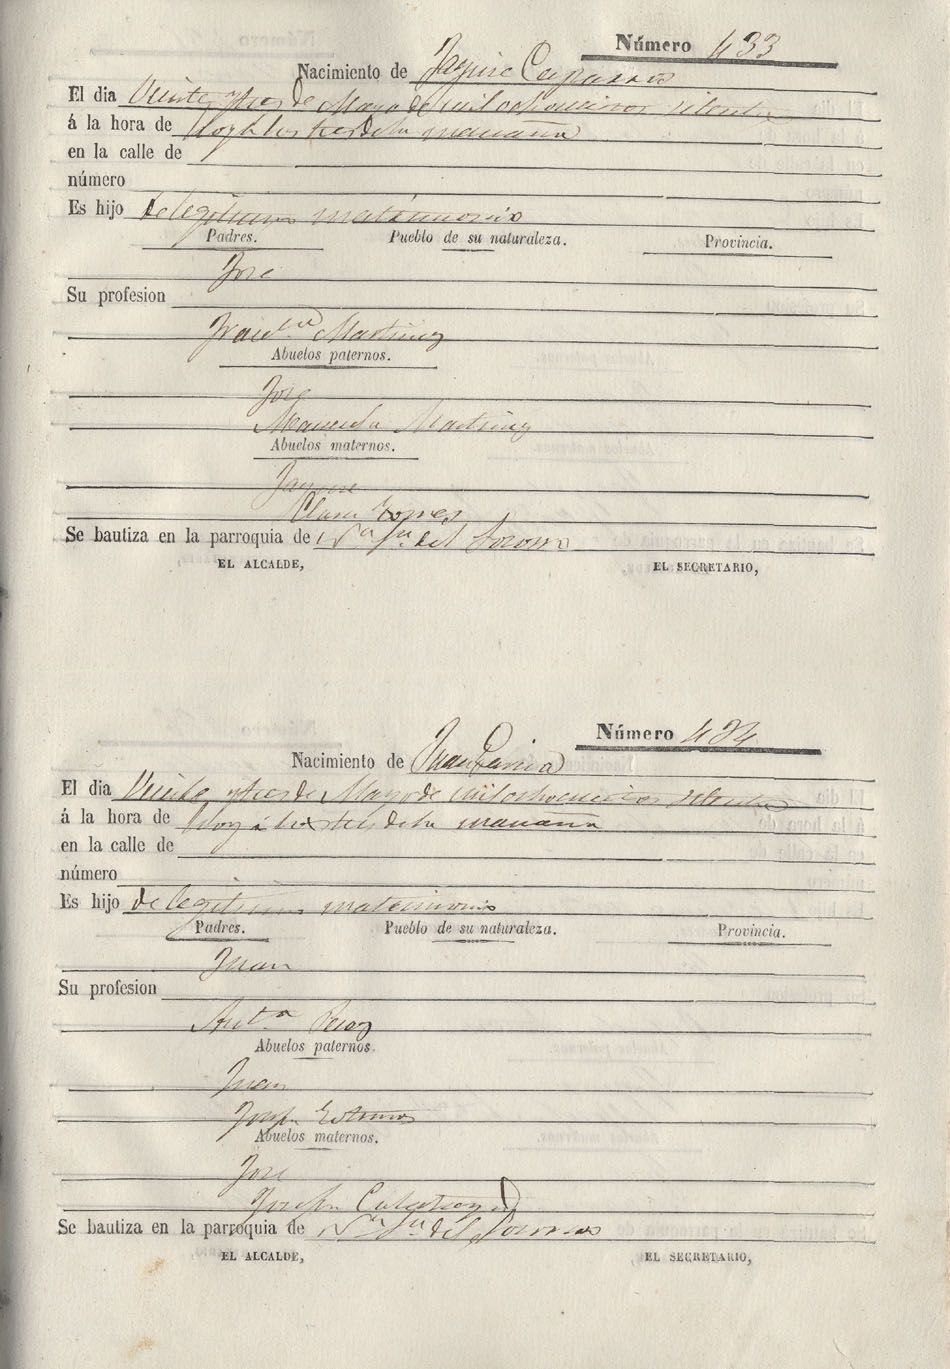 Número 433
Nacimiento de Jayme Caparros
El dia Veinte y tres de Mayo de mil ochocientos setenta
á la hora de Hoy a las tres de la mañana
en la calle de
número
Es hijo de legitimo matrimonio
Padres. Pueblo de su naturaleza. Provincia.
Jose
Su profesion
Martinez
Abuelos paternos.
Jose
Manuela Martinez
Abuelos maternos.
Jayme
Clara Torres
Se bautiza en la parroquia de Nª Srª del Socorro
EL ALCALDE, EL SECRETARIO,
Número 434
Nacimiento de Juan Garcia
El dia Veinte y tres de Mayo de mil ochocientos setenta
á la hora de Hoy á las tres de la mañana
en la calle de
número
Es hijo de legitimo matrimonio
Padres. Pueblo de su naturaleza. Provincia.
Juan
Su profesion
Antª Perez
Abuelos paternos.
Juan
Josefa
Abuelos maternos.
Jose
Josefa
Se bautiza en la parroquia de Nª Srª del Socorro
EL ALCALDE, EL SECRETARIO,